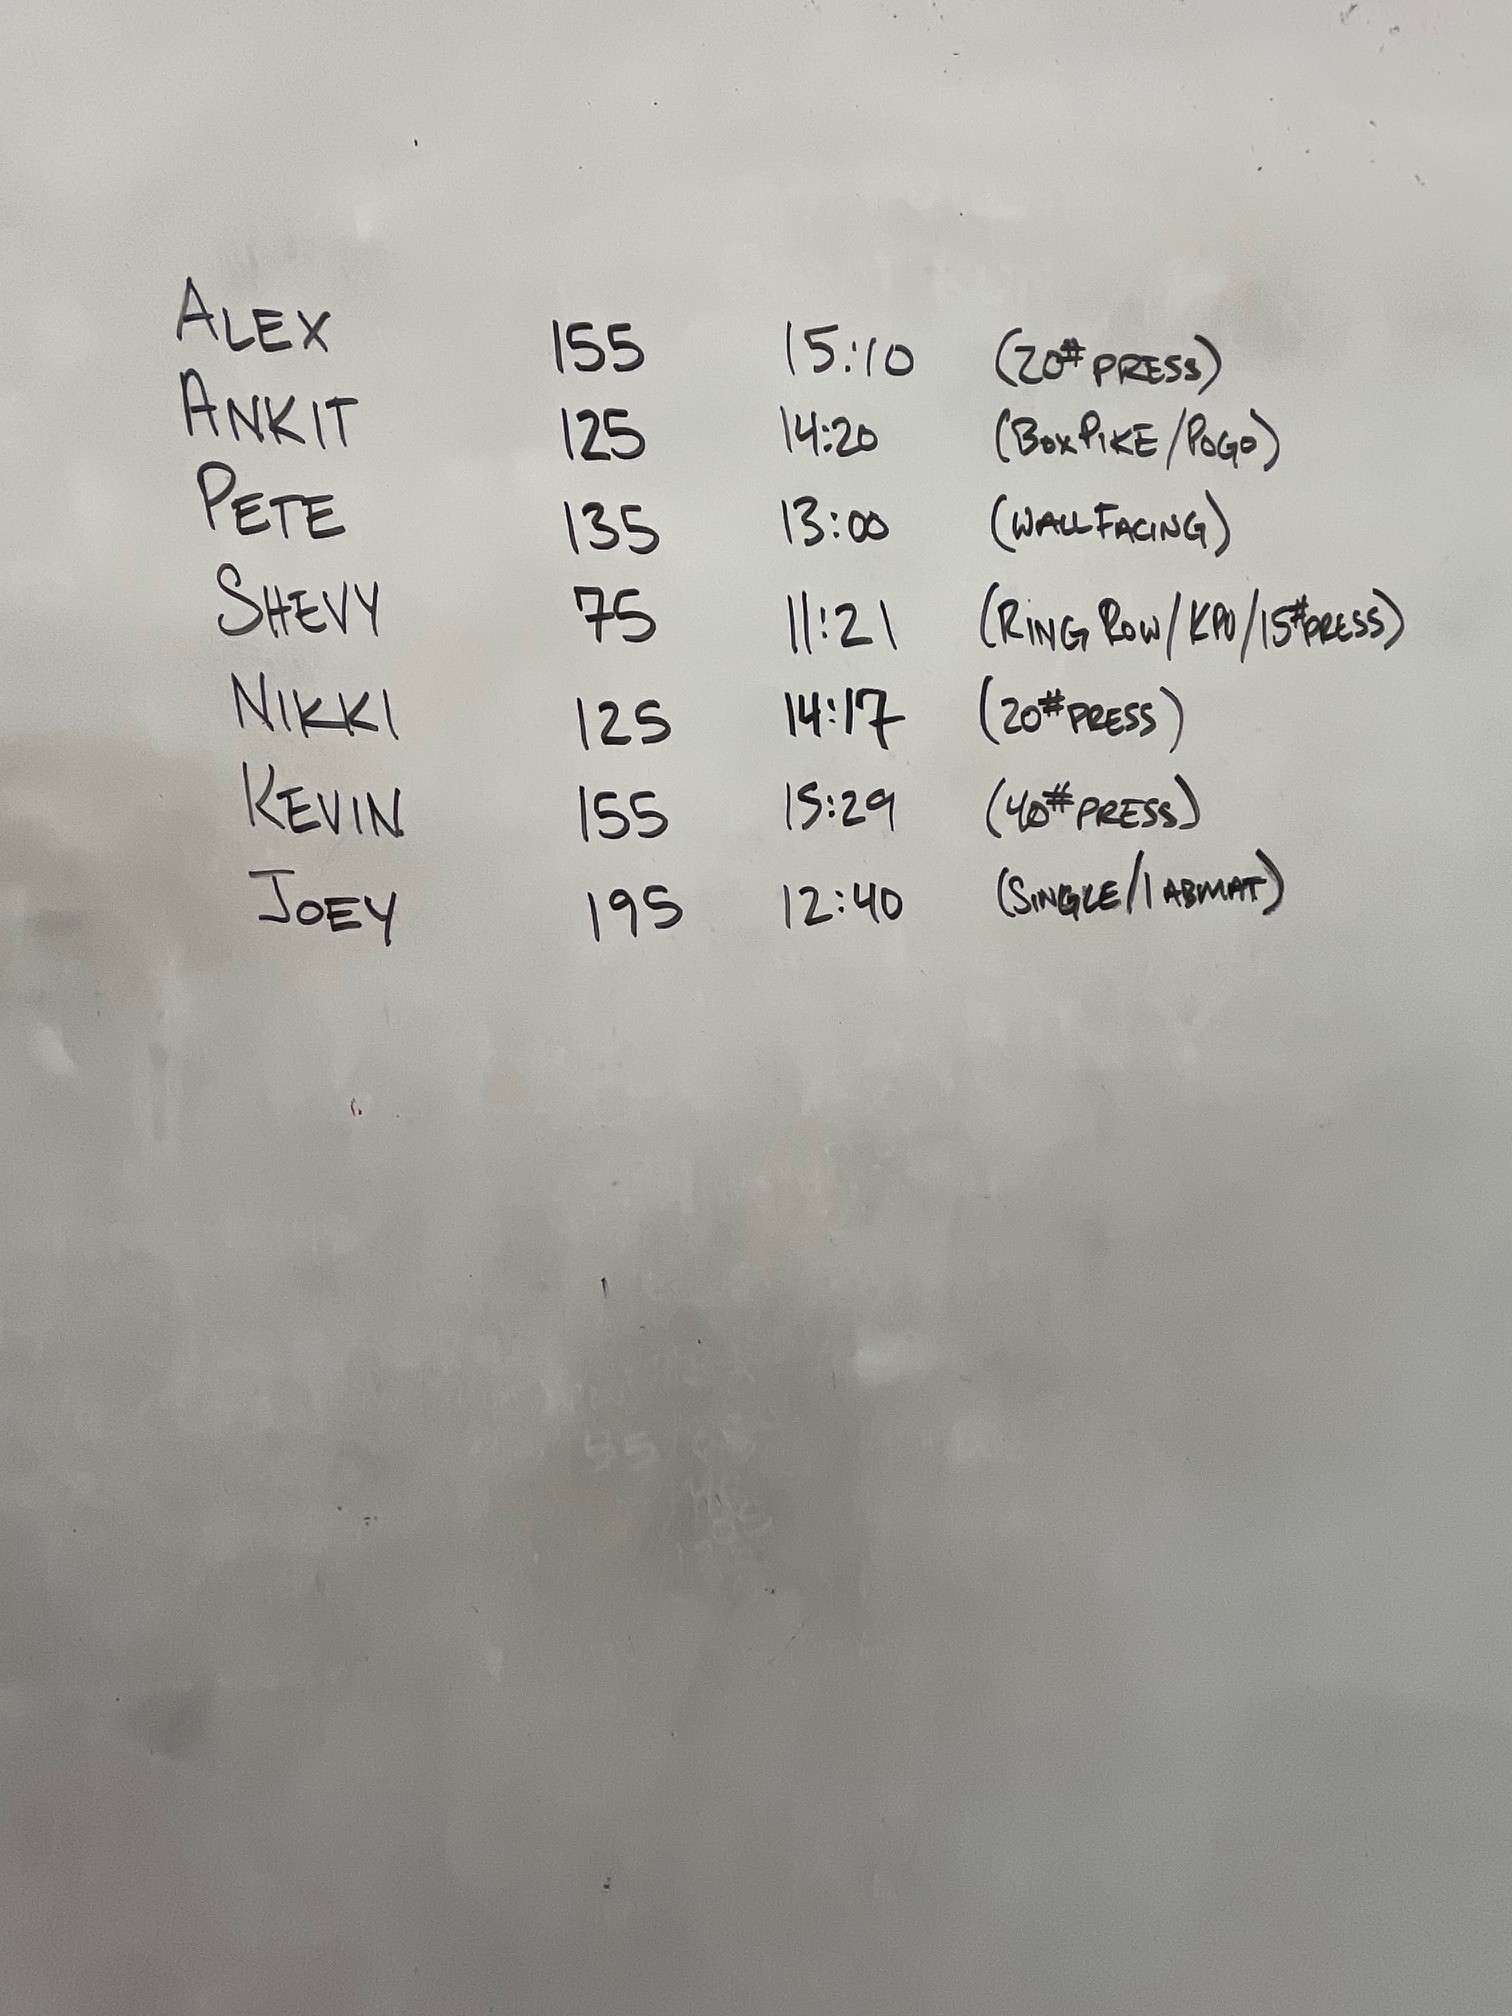 ALEX 155 15:10 (20# PRESS)
ANKIT 125 14:20 (BOX PIKE/POGO)
PETE 135 13:00 (WALL FACING)
SHEVY 75 11:21 (RING ROW/KPU/15# PRESS)
NIKKI 125 14:17 (20# PRESS)
KEVIN 155 15:29 (40# PRESS)
JOEY 195 12:40 (SINGLE/1 ABMAT)